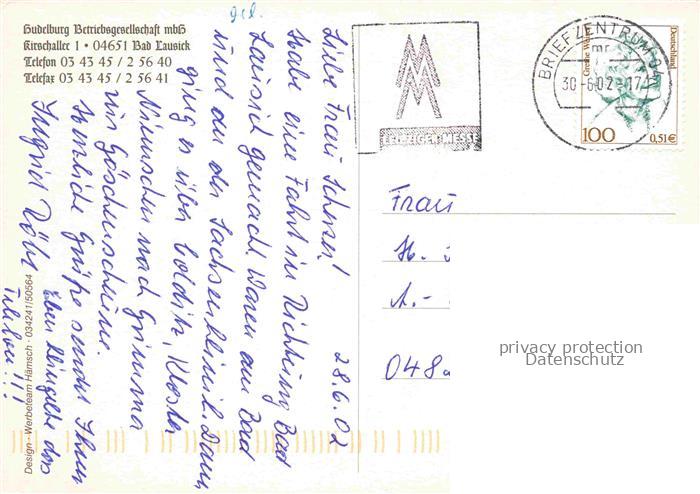 Hudelburg Betriebsgesellschaft mbH
Kirschallee 1 • 04651 Bad Lausick
Telefon 03 43 45 / 2 56 40
Telefax 03 43 45 / 2 56 41
gel.
28.6.02
Liebe Frau
habe eine Fahrt in Richtung Bad
Lausick gemacht. Waren am Bad
und in der Sachsenklinik. Dann
ging es über Colditz, Kloster
Nimbschen nach Grimma
ins Göschenhaus.
Herzliche Grüße sendet Ihnen
Ingrid
Telefon!!!
Design - Werbeteam Hämsch - 034241/50564
LEIPZIGER MESSE
BRIEFZENTRUM 04
mr
30-6.02-17
Grethe Weiser
Deutschland
100
0,51€
Frau
H.
A.-
048
privacy protection
Datenschutz